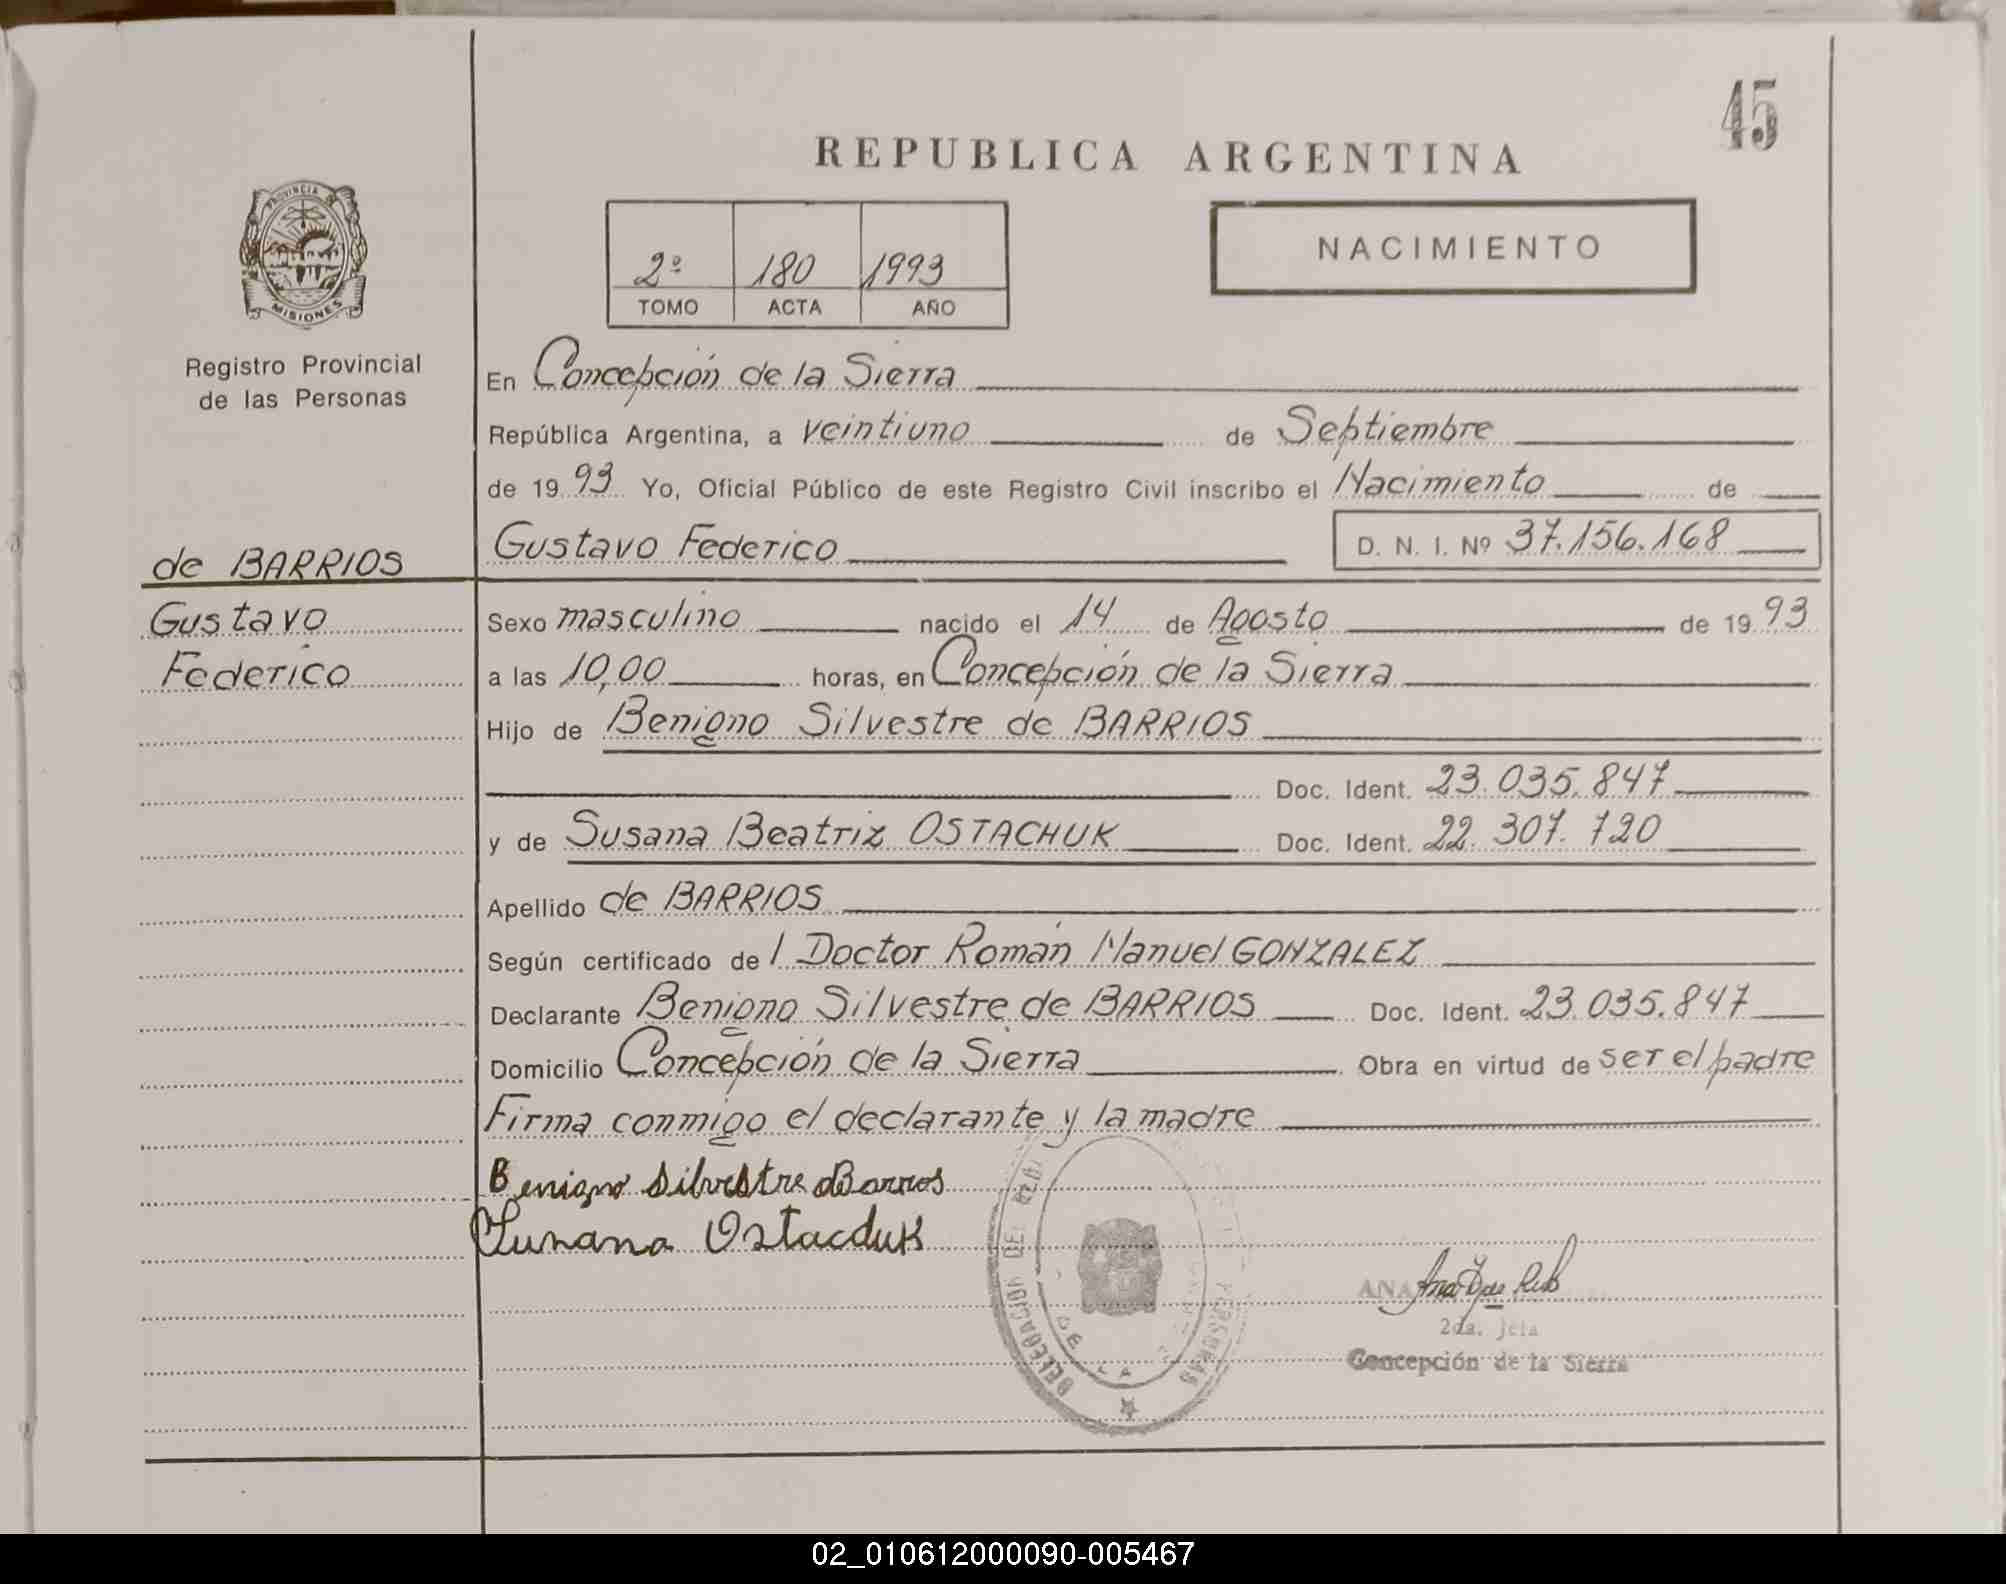 45
REPUBLICA ARGENTINA
PROVINCIA DE
MISIONES
2º 180 1993
TOMO ACTA AÑO
NACIMIENTO
Registro Provincial
de las Personas
En Concepción de la Sierra
República Argentina, a veintiuno de Septiembre
de 1993 Yo, Oficial Público de este Registro Civil inscribo el Nacimiento de
Gustavo Federico D. N. I. Nº 37.156.168
de BARRIOS
Gustavo
Federico
Sexo masculino nacido el 14 de Agosto de 1993
a las 10,00 horas, en Concepción de la Sierra
Hijo de Benigno Silvestre de BARRIOS
Doc. Ident. 23.035.847
y de Susana Beatriz OSTACHUK Doc. Ident. 22.307.720
Apellido de BARRIOS
Según certificado del Doctor Román Manuel GONZALEZ
Declarante Benigno Silvestre de BARRIOS Doc. Ident. 23.035.847
Domicilio Concepción de la Sierra Obra en virtud de ser el padre
Firma conmigo el declarante y la madre
Benigno Silvestre dBarrios
Susana Ostacduk
DELEGACION DEL
DE LA
ANA
2da. Jefa
Concepción de la Sierra
02_010612000090-005467